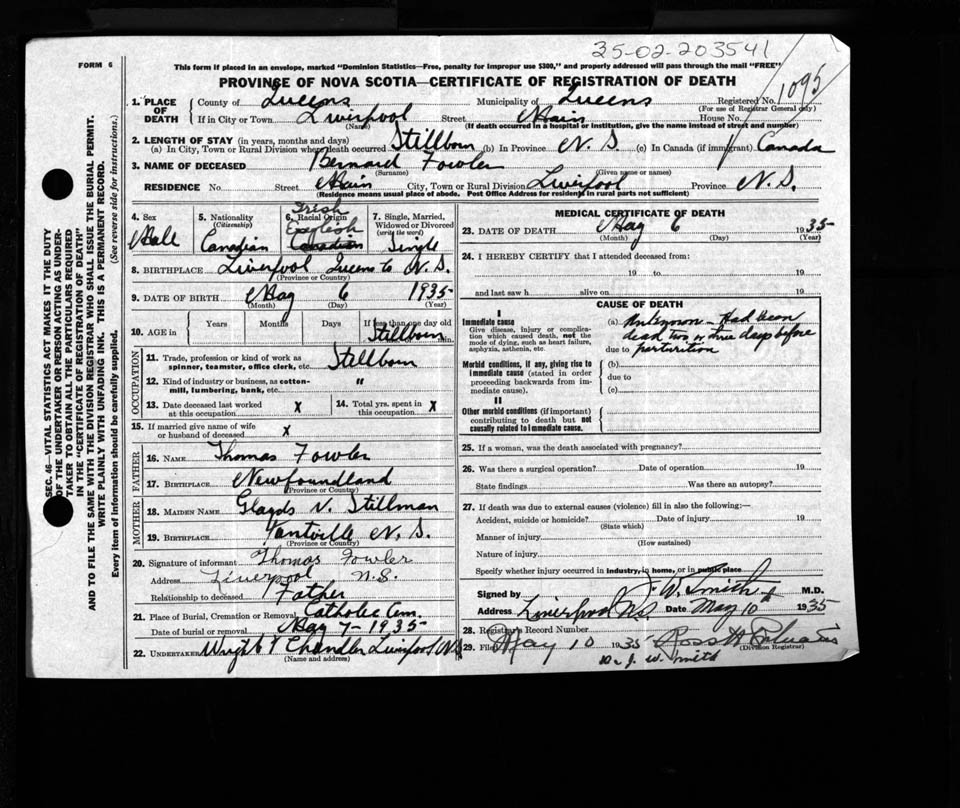 35-02-203541
FORM 6
This form if placed in an envelope, marked "Dominion Statistics—Free, penalty for improper use $300," and properly addressed will pass through the mail "FREE"
PROVINCE OF NOVA SCOTIA—CERTIFICATE OF REGISTRATION OF DEATH
1. PLACE OF DEATH
County of Queens Municipality of Queens Registered No. 1095
(For use of Registrar General only)
If in City or Town Liverpool Street Main House No.
(Name) (If death occurred in a hospital or institution, give the name instead of street and number)
2. LENGTH OF STAY (in years, months and days)
(a) In City, Town or Rural Division where death occurred Stillborn (b) In Province N. S. (c) In Canada (if immigrant) Canada
3. NAME OF DECEASED Bernard Fowler
(Surname) (Given name or names)
RESIDENCE No. Street Main City, Town or Rural Division Liverpool Province N. S.
(Residence means usual place of abode. Post Office Address for residents in rural parts not sufficient)
4. Sex
Male
5. Nationality
(Citizenship)
Canadian
6. Racial Origin
Irish
English
Canadian
7. Single, Married, Widowed or Divorced
(write the word)
Single
8. BIRTHPLACE Liverpool Queens Co N. S.
(Province or Country)
9. DATE OF BIRTH May 6 1935
(Month) (Day) (Year)
10. AGE in Years Months Days If less than one day old
Stillborn min.
OCCUPATION
11. Trade, profession or kind of work as spinner, teamster, office clerk, etc. Stillborn
12. Kind of industry or business, as cotton-mill, lumbering, bank, etc. "
13. Date deceased last worked at this occupation X
14. Total yrs. spent in this occupation X
15. If married give name of wife or husband of deceased X
FATHER
16. NAME Thomas Fowler
17. BIRTHPLACE Newfoundland
(Province or Country)
MOTHER
18. MAIDEN NAME Glayds V. Stillman
19. BIRTHPLACE N. S.
(Province or Country)
20. Signature of informant Thomas Fowler
Address Liverpool N.S.
Relationship to deceased Father
21. Place of Burial, Cremation or Removal Catholic Cem.
Date of burial or removal May 7 - 1935
22. UNDERTAKER Wright & Chandler Liverpool N.S
(Name and address)
MEDICAL CERTIFICATE OF DEATH
23. DATE OF DEATH May 6 1935
(Month) (Day) (Year)
24. I HEREBY CERTIFY that I attended deceased from:
19 to 19
and last saw h alive on 19
CAUSE OF DEATH
I
Immediate cause
Give disease, injury or complication which caused death, not the mode of dying, such as heart failure, asphyxia, asthenia, etc.
(a) Unknown - Had been
dead two or three days before
due to parturition
Morbid conditions, if any, giving rise to immediate cause (stated in order proceeding backwards from immediate cause).
(b)
due to
(c)
II
Other morbid conditions (if important) contributing to death but not causally related to immediate cause.
25. If a woman, was the death associated with pregnancy?
26. Was there a surgical operation? Date of operation 19
State findings Was there an autopsy?
27. If death was due to external causes (violence) fill in also the following:—
Accident, suicide or homicide? Date of injury 19
(State which)
Manner of injury
(How sustained)
Nature of injury
Specify whether injury occurred in industry, in home, or in public place
Signed by J. W. Smith M.D.
Address Liverpool N.S Date May 10 1935
28. Registrar's Record Number
29. Filed May 10 1935 Ross H
(Division Registrar)
J. W. Smith
SEC. 46—VITAL STATISTICS ACT MAKES IT THE DUTY
OF THE UNDERTAKER OR PERSON ACTING AS UNDER-
TAKER TO OBTAIN ALL THE PARTICULARS REQUIRED
IN THE "CERTIFICATE OF REGISTRATION OF DEATH"
AND TO FILE THE SAME WITH THE DIVISION REGISTRAR WHO SHALL ISSUE THE BURIAL PERMIT.
WRITE PLAINLY WITH UNFADING INK. THIS IS A PERMANENT RECORD.
Every item of information should be carefully supplied. (See reverse side for instructions.)